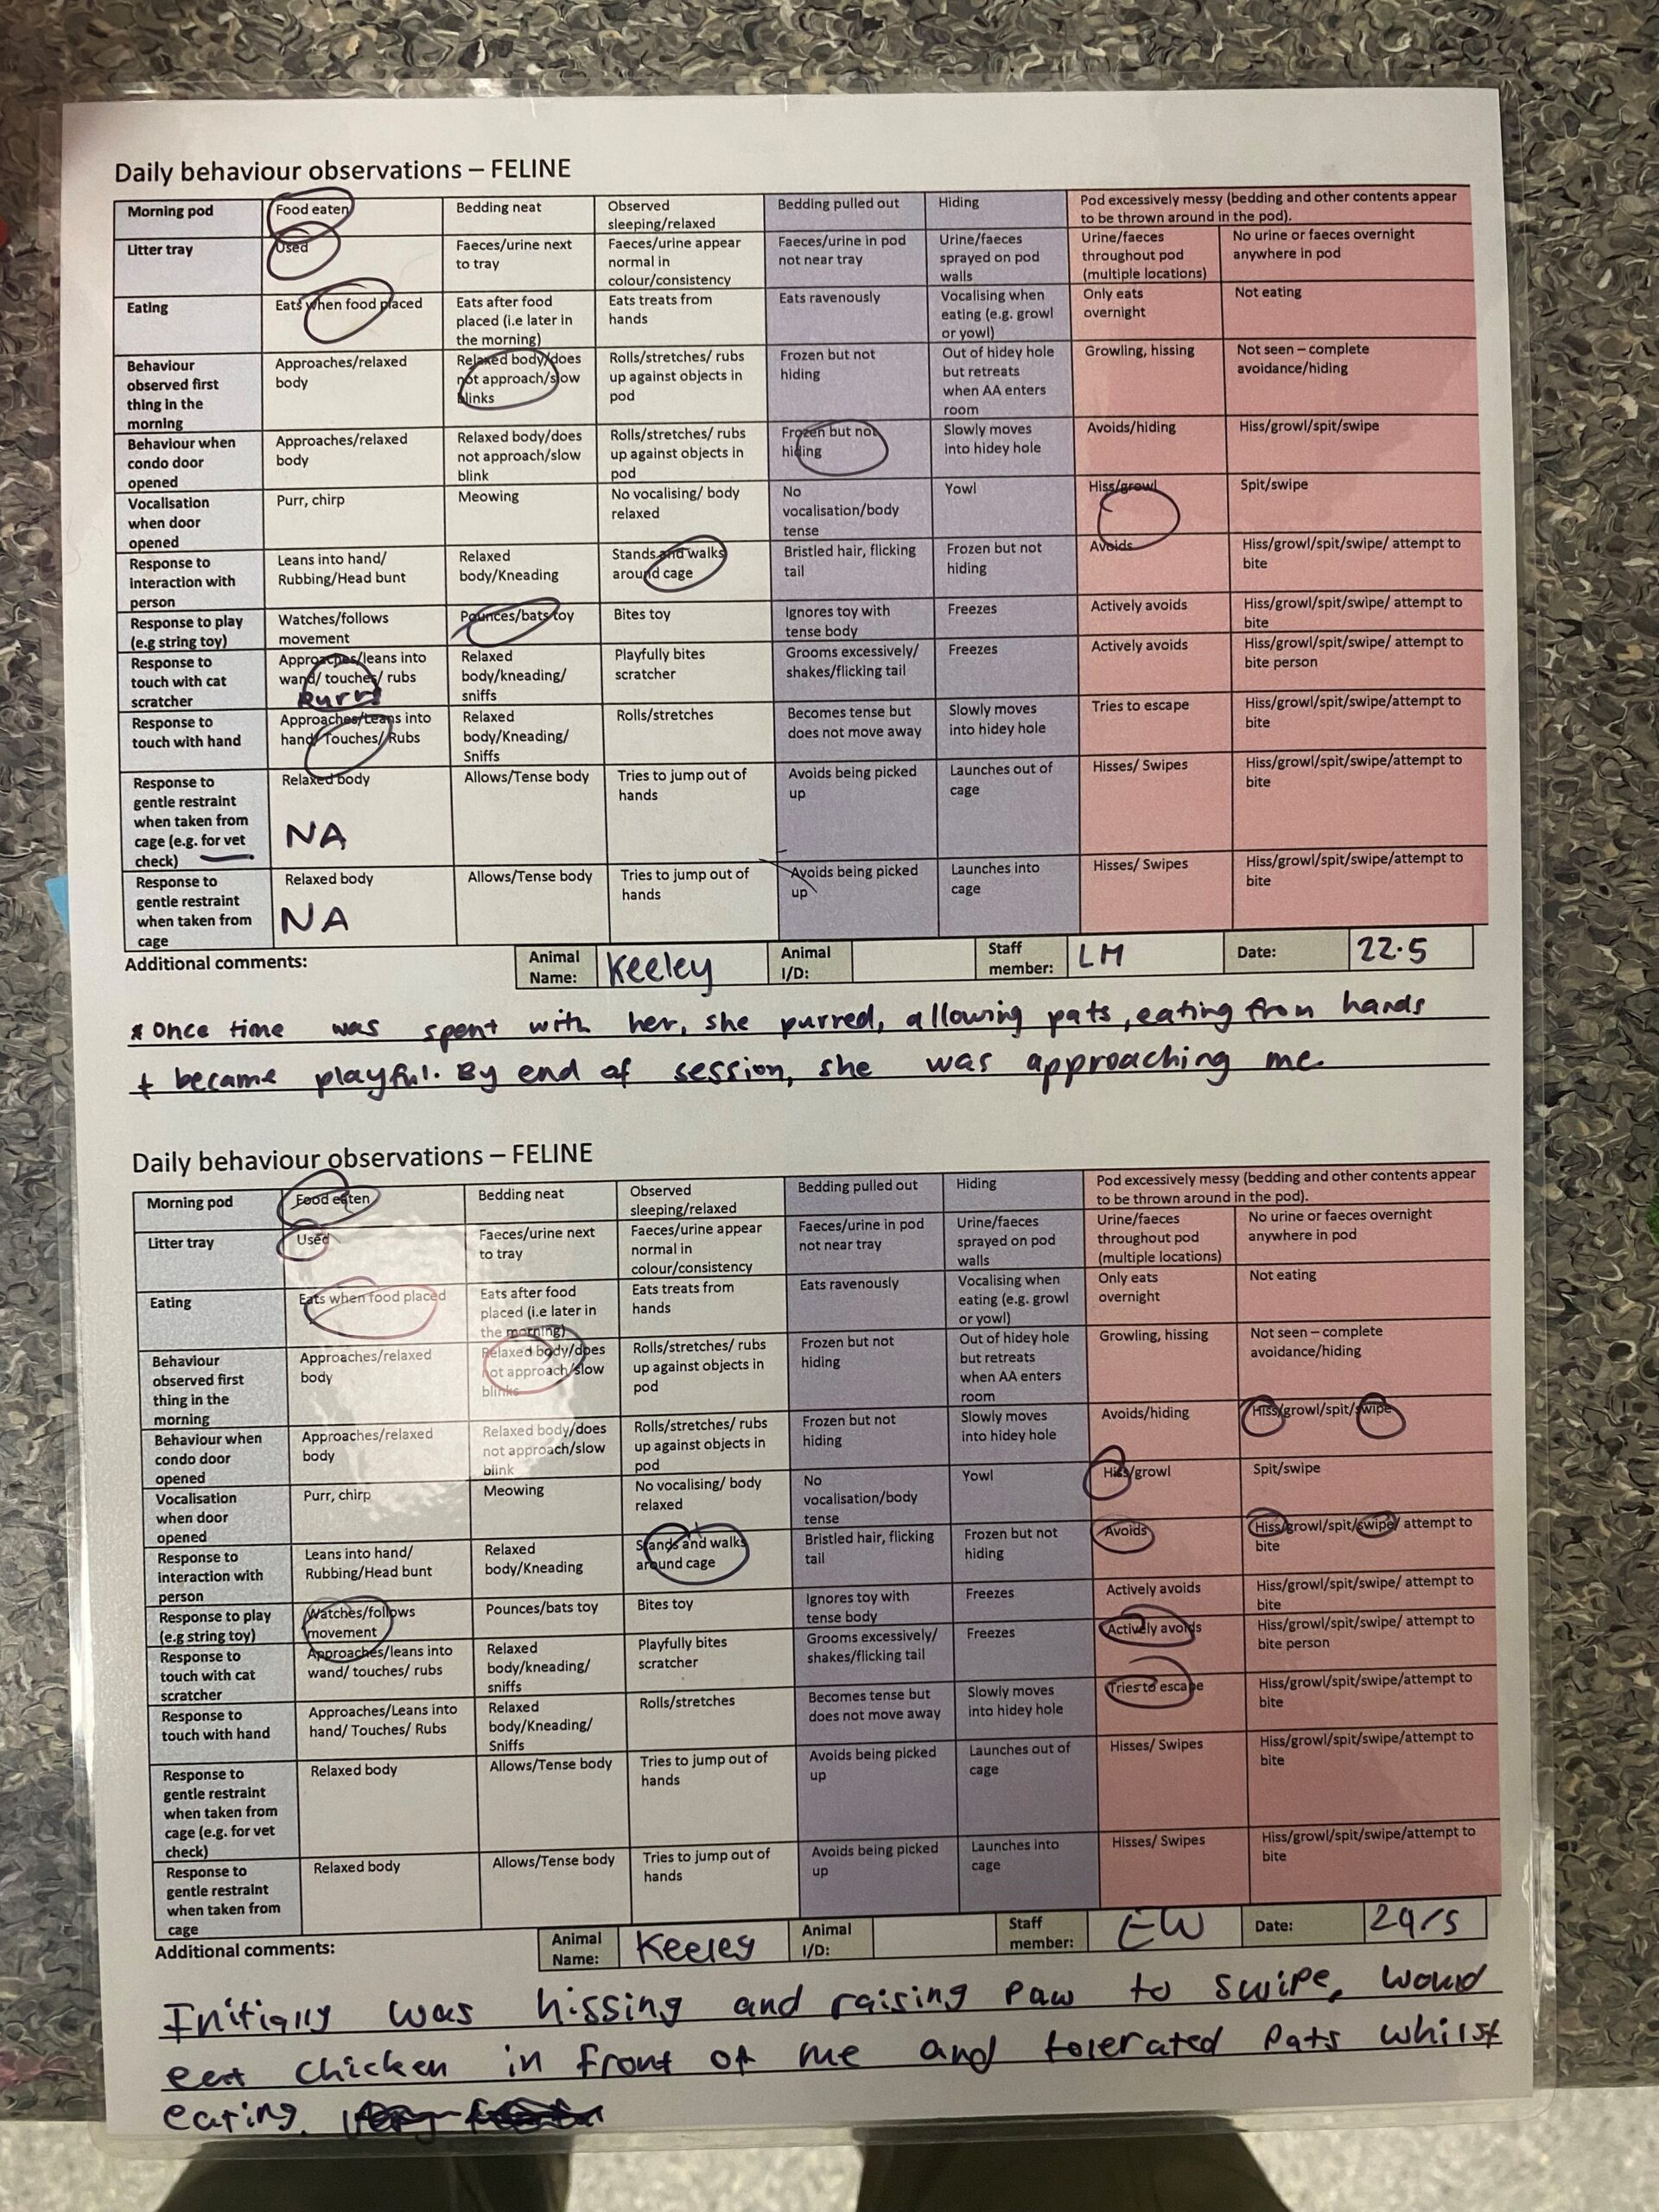 Daily behaviour observations – FELINE
Morning pod | Food eaten | Bedding neat | Observed sleeping/relaxed | Bedding pulled out | Hiding | Pod excessively messy (bedding and other contents appear to be thrown around in the pod).
Litter tray | Used | Faeces/urine next to tray | Faeces/urine appear normal in colour/consistency | Faeces/urine in pod not near tray | Urine/faeces sprayed on pod walls | Urine/faeces throughout pod (multiple locations) | No urine or faeces overnight anywhere in pod
Eating | Eats when food placed | Eats after food placed (i.e later in the morning) | Eats treats from hands | Eats ravenously | Vocalising when eating (e.g. growl or yowl) | Only eats overnight | Not eating
Behaviour observed first thing in the morning | Approaches/relaxed body | Relaxed body/does not approach/slow blinks | Rolls/stretches/ rubs up against objects in pod | Frozen but not hiding | Out of hidey hole but retreats when AA enters room | Growling, hissing | Not seen – complete avoidance/hiding
Behaviour when condo door opened | Approaches/relaxed body | Relaxed body/does not approach/slow blink | Rolls/stretches/ rubs up against objects in pod | Frozen but not hiding | Slowly moves into hidey hole | Avoids/hiding | Hiss/growl/spit/swipe
Vocalisation when door opened | Purr, chirp | Meowing | No vocalising/ body relaxed | No vocalisation/body tense | Yowl | Hiss/growl | Spit/swipe
Response to interaction with person | Leans into hand/ Rubbing/Head bunt | Relaxed body/Kneading | Stands and walks around cage | Bristled hair, flicking tail | Frozen but not hiding | Avoids | Hiss/growl/spit/swipe/ attempt to bite
Response to play (e.g string toy) | Watches/follows movement | Pounces/bats toy | Bites toy | Ignores toy with tense body | Freezes | Actively avoids | Hiss/growl/spit/swipe/ attempt to bite
Response to touch with cat scratcher | Approaches/leans into wand/ touches/ rubs Purrs | Relaxed body/kneading/ sniffs | Playfully bites scratcher | Grooms excessively/ shakes/flicking tail | Freezes | Actively avoids | Hiss/growl/spit/swipe/ attempt to bite person
Response to touch with hand | Approaches/Leans into hand/ Touches/ Rubs | Relaxed body/Kneading/ Sniffs | Rolls/stretches | Becomes tense but does not move away | Slowly moves into hidey hole | Tries to escape | Hiss/growl/spit/swipe/attempt to bite
Response to gentle restraint when taken from cage (e.g. for vet check) | Relaxed body NA | Allows/Tense body | Tries to jump out of hands | Avoids being picked up | Launches out of cage | Hisses/ Swipes | Hiss/growl/spit/swipe/attempt to bite
Response to gentle restraint when taken from cage | Relaxed body NA | Allows/Tense body | Tries to jump out of hands | Avoids being picked up | Launches into cage | Hisses/ Swipes | Hiss/growl/spit/swipe/attempt to bite
Additional comments: | Animal Name: Keeley | Animal I/D: | Staff member: LM | Date: 22.5
* Once time was spent with her, she purred, allowing pats, eating from hands
+ became playful. By end of session, she was approaching me.
Daily behaviour observations – FELINE
Morning pod | Food eaten | Bedding neat | Observed sleeping/relaxed | Bedding pulled out | Hiding | Pod excessively messy (bedding and other contents appear to be thrown around in the pod).
Litter tray | Used | Faeces/urine next to tray | Faeces/urine appear normal in colour/consistency | Faeces/urine in pod not near tray | Urine/faeces sprayed on pod walls | Urine/faeces throughout pod (multiple locations) | No urine or faeces overnight anywhere in pod
Eating | Eats when food placed | Eats after food placed (i.e later in the morning) | Eats treats from hands | Eats ravenously | Vocalising when eating (e.g. growl or yowl) | Only eats overnight | Not eating
Behaviour observed first thing in the morning | Approaches/relaxed body | Relaxed body/does not approach/slow blinks | Rolls/stretches/ rubs up against objects in pod | Frozen but not hiding | Out of hidey hole but retreats when AA enters room | Growling, hissing | Not seen – complete avoidance/hiding
Behaviour when condo door opened | Approaches/relaxed body | Relaxed body/does not approach/slow blink | Rolls/stretches/ rubs up against objects in pod | Frozen but not hiding | Slowly moves into hidey hole | Avoids/hiding | Hiss/growl/spit/swipe
Vocalisation when door opened | Purr, chirp | Meowing | No vocalising/ body relaxed | No vocalisation/body tense | Yowl | Hiss/growl | Spit/swipe
Response to interaction with person | Leans into hand/ Rubbing/Head bunt | Relaxed body/Kneading | Stands and walks around cage | Bristled hair, flicking tail | Frozen but not hiding | Avoids | Hiss/growl/spit/swipe/ attempt to bite
Response to play (e.g string toy) | Watches/follows movement | Pounces/bats toy | Bites toy | Ignores toy with tense body | Freezes | Actively avoids | Hiss/growl/spit/swipe/ attempt to bite
Response to touch with cat scratcher | Approaches/leans into wand/ touches/ rubs | Relaxed body/kneading/ sniffs | Playfully bites scratcher | Grooms excessively/ shakes/flicking tail | Freezes | Actively avoids | Hiss/growl/spit/swipe/ attempt to bite person
Response to touch with hand | Approaches/Leans into hand/ Touches/ Rubs | Relaxed body/Kneading/ Sniffs | Rolls/stretches | Becomes tense but does not move away | Slowly moves into hidey hole | Tries to escape | Hiss/growl/spit/swipe/attempt to bite
Response to gentle restraint when taken from cage (e.g. for vet check) | Relaxed body | Allows/Tense body | Tries to jump out of hands | Avoids being picked up | Launches out of cage | Hisses/ Swipes | Hiss/growl/spit/swipe/attempt to bite
Response to gentle restraint when taken from cage | Relaxed body | Allows/Tense body | Tries to jump out of hands | Avoids being picked up | Launches into cage | Hisses/ Swipes | Hiss/growl/spit/swipe/attempt to bite
Additional comments: | Animal Name: Keeley | Animal I/D: | Staff member: EW | Date: 29/5
Initially was hissing and raising paw to swipe, would
eat chicken in front of me and tolerated pats whilst
eating.